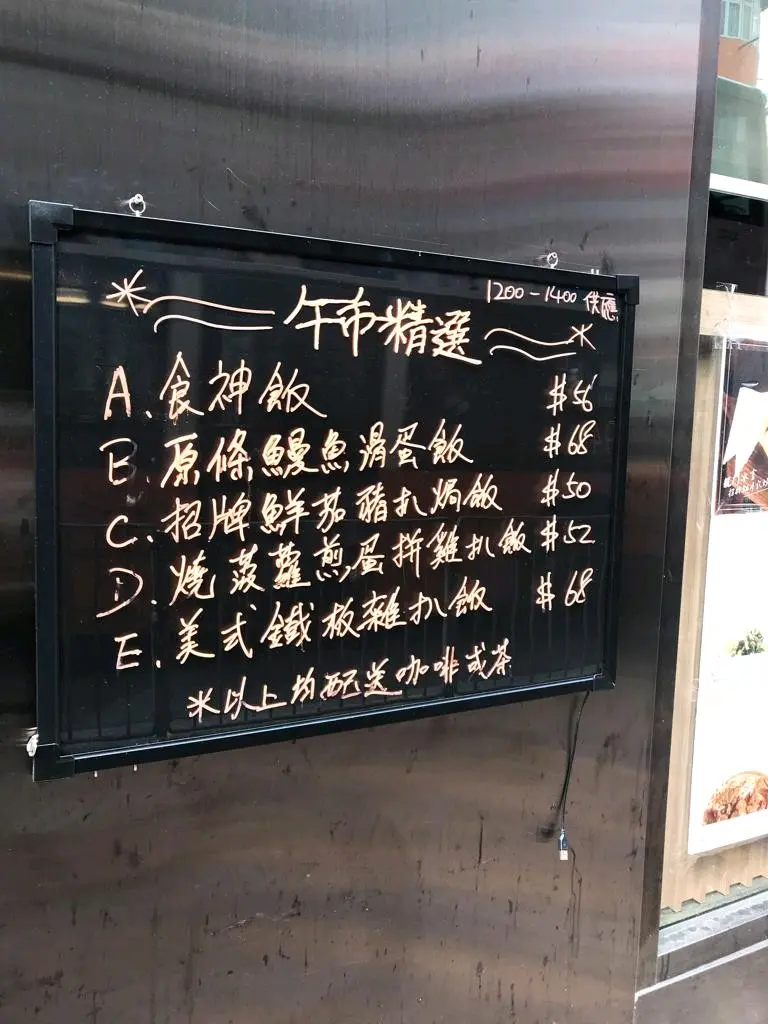 1200-1400 供應
午市精選
A. 食神飯 $56
B. 原條鰻魚滑蛋飯 $68
C. 招牌鮮茄豬扒焗飯 $50
D. 燒菠蘿煎蛋拼雞扒飯 $52
E. 美式鐵板雜扒飯 $68
*以上均配送咖啡或茶